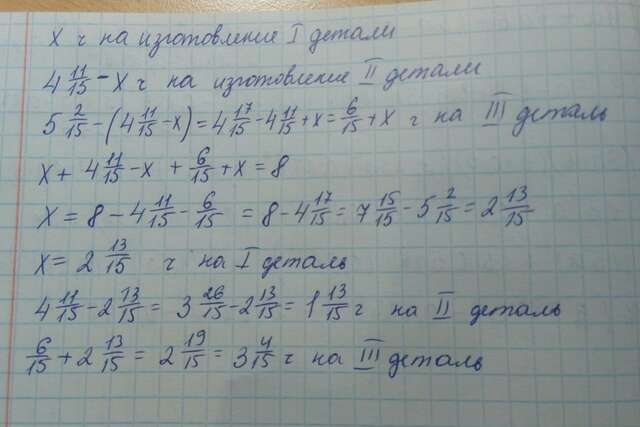 x ч на изготовление I детали
4 11/15 - x ч на изготовление II детали
5 2/15 - (4 11/15 - x) = 4 17/15 - 4 11/15 + x = 6/15 + x ч на III деталь
x + 4 11/15 - x + 6/15 + x = 8
x = 8 - 4 11/15 - 6/15 = 8 - 4 17/15 = 7 15/15 - 5 2/15 = 2 13/15
x = 2 13/15 ч на I деталь
4 11/15 - 2 13/15 = 3 26/15 - 2 13/15 = 1 13/15 ч на II деталь
6/15 + 2 13/15 = 2 19/15 = 3 4/15 ч на III деталь